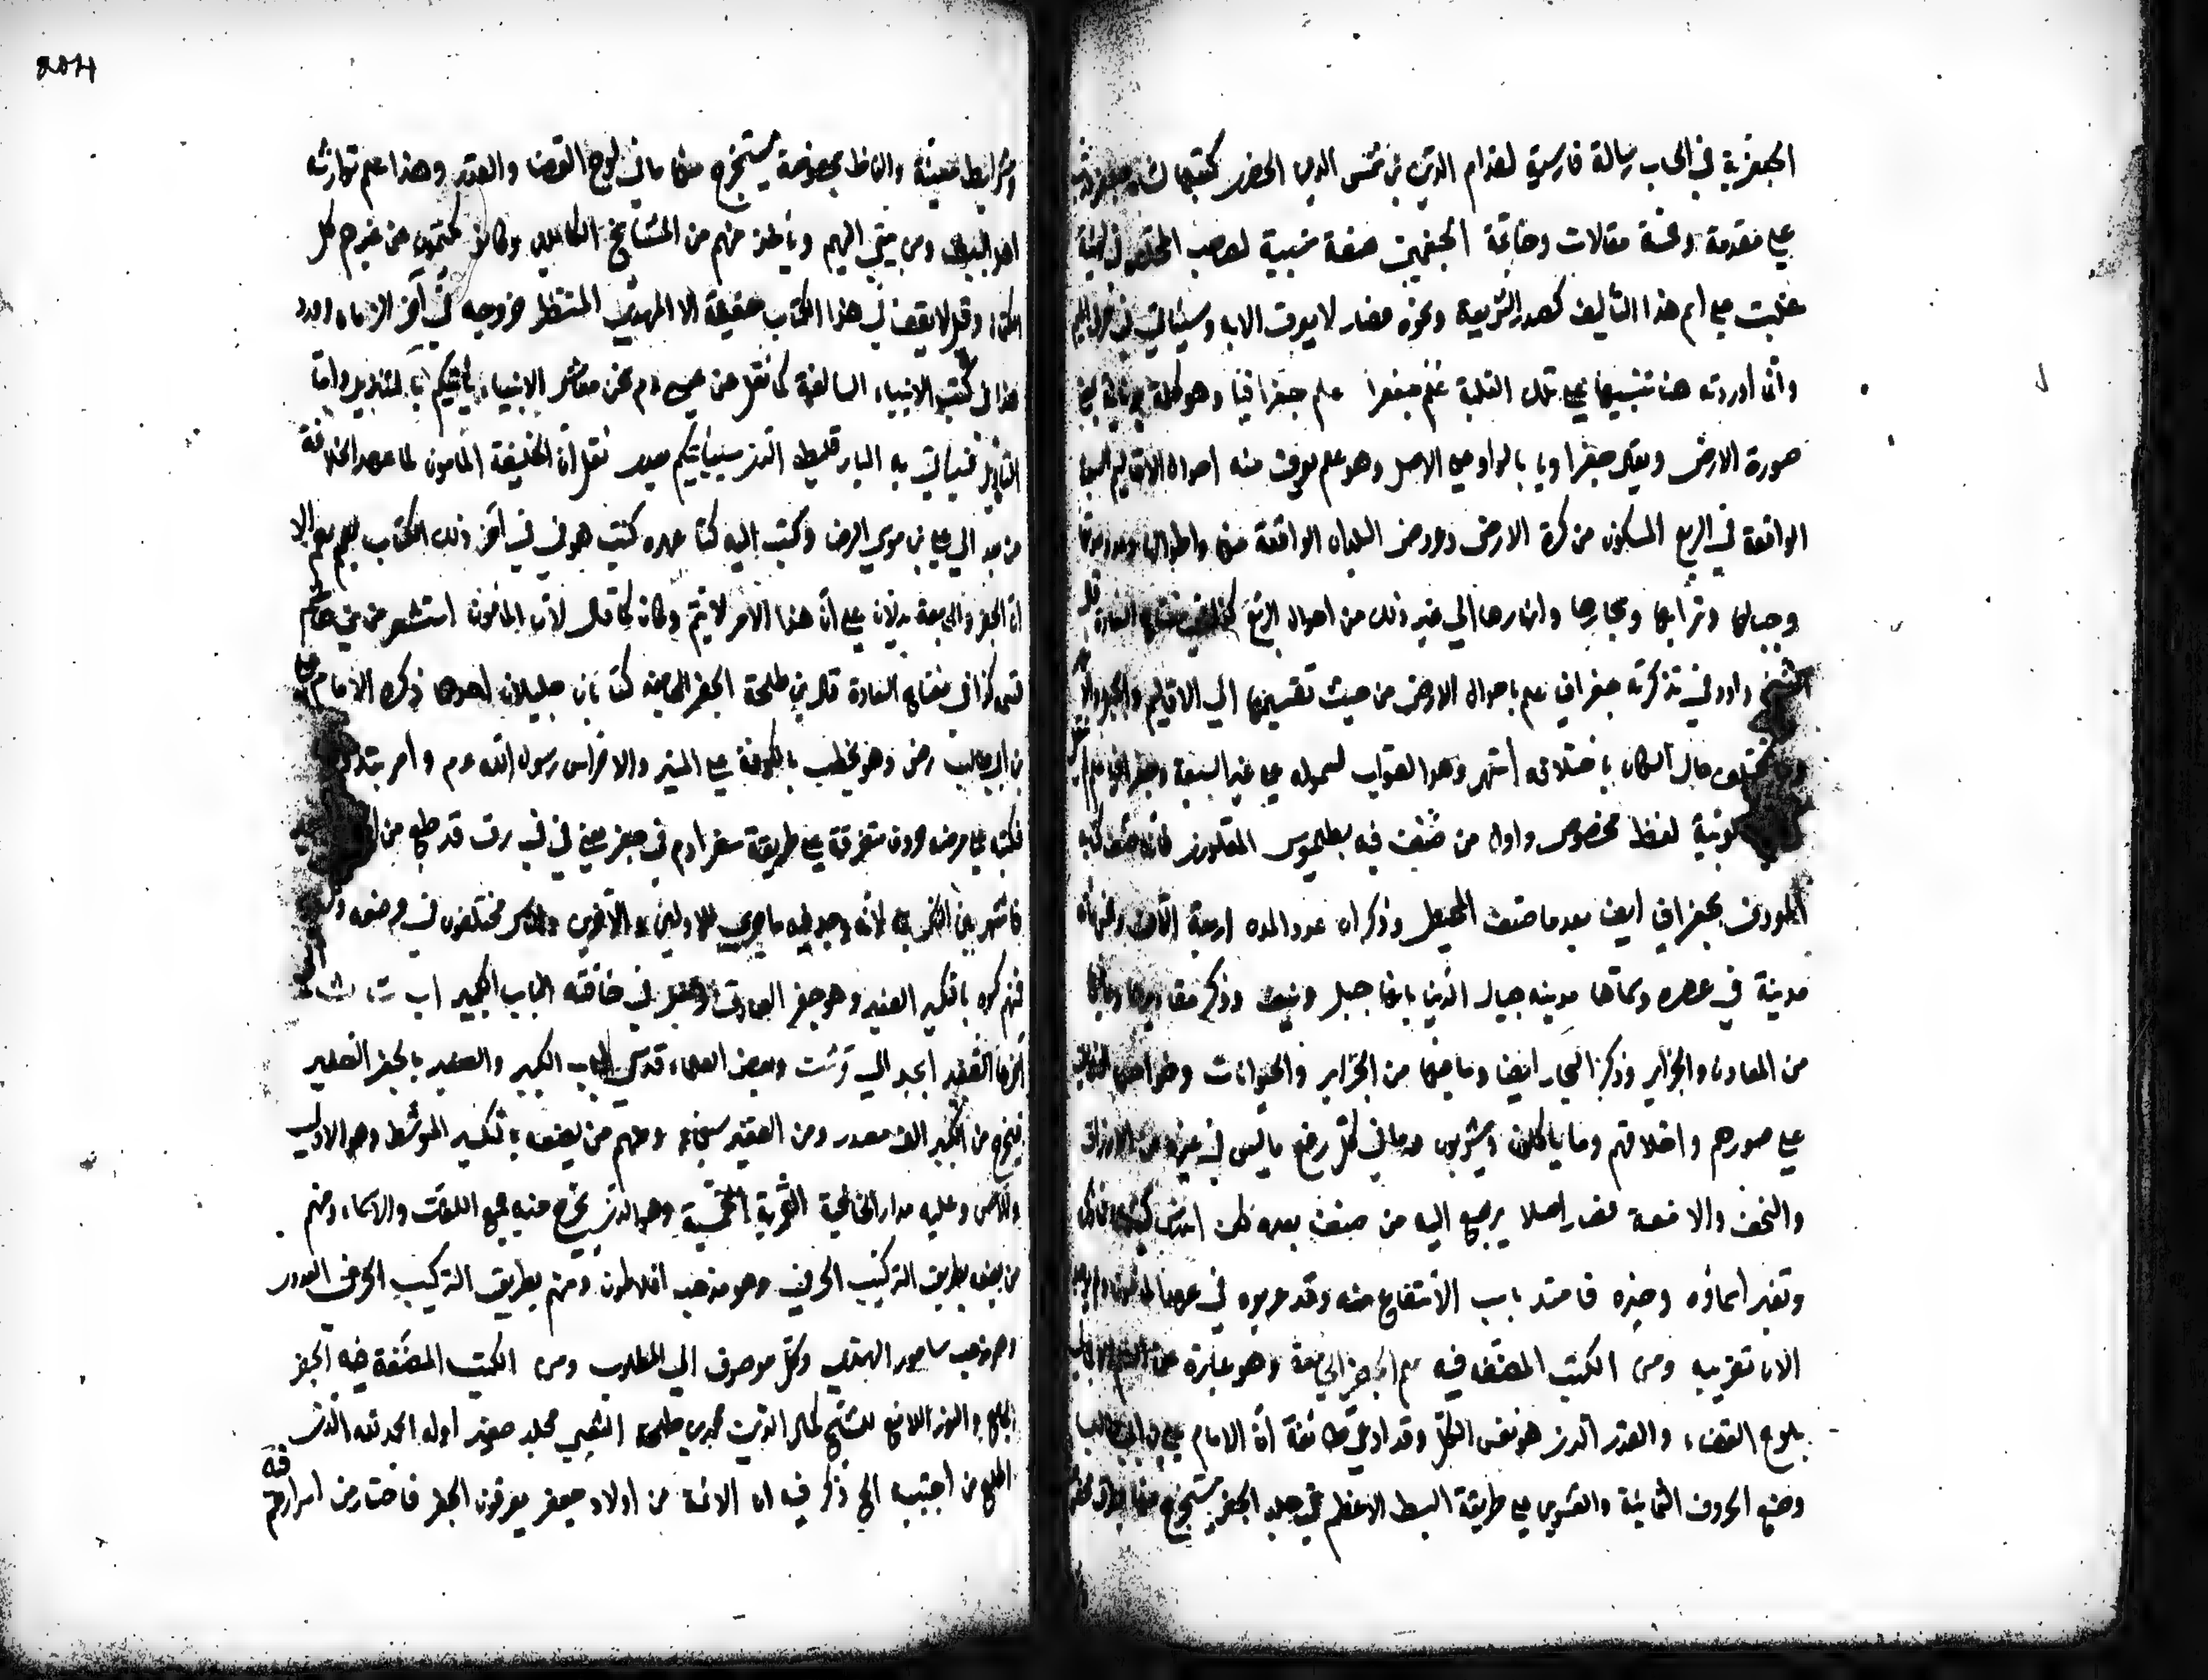 الجعفرية في الحساب رسالة فارسية لقوام الدين بن شمس الدين الخضري كتبها
على مقدمة وخمسة مقالات وخاتمة الجغميني صفة نسبية لصاحب الملخص في الهيئة
غلبت على اسم هذا التأليف كصدر الشريعة ونحوه فصار لا يعرف الا به وسيأتي في حرف الميم
وانما اوردته هنا تنبيها على تلك الغلبة علم جغرافيا وهو كلمة يونانية بمعنى
صورة الارض ويقال جغراويا بالواو على الاصل وهو علم يعرف منه احوال الاقاليم السبعة
الواقعة في الربع المسكون من كرة الارض وعروض البلدان الواقعة فيها واطوالها وعدد مدنها
وجبالها وبراريها وبحارها وانهارها الي غير ذلك من احوال الربع كذا في مفتاح السعادة قال
الشيخ داود في تذكرته جغرافيا علم باحوال الارض من حيث تقسيمها الي الاقاليم والجبال و
وما يختلف حال السكان باختلافه انتهى وهو الصواب لشموله على غير السبعة وجغرافيا علم لم
لفظ مخصوص واول من صنف فيه بطليموس القلوذي فانه صنف كتابه
المعروف بجغرافيا ايضا بعدما صنف المجسطي وذكر ان عدد المدن اربعة آلاف
مدينة في عصره وسماها مدينة جبال الدنيا مائتا جبل ونيف وذكر مقاديرها وما فيها
من المعادن والجواهر وذكر البحار ايضا وما فيها من الجزاير والحيوانات وخواصها
على صورهم واخلاقهم وما يأكلون ويشربون وما في كل صقع ما ليس في غيره من الارزاق
والتحف والامتعة فصار اصلا يرجع اليه من صنف بعده لكن اندرس كثير مما ذكره
وتغير اسماؤه وخبره فانسد باب الانتفاع منه وقد عربوه في عهد المأمون ولم يوجد
الان تعريبه ومن الكتب المصنفة فيه علم الجفر والجامعة وهو عبارة عن العلم الاجمالي
بلوح القضاء والقدر الذي هو نفس الكل وقد ادعى طائفة ان الامام علي بن ابي طالب
وضع الحروف الثمانية والعشرين على طريقة البسط الاعظم في جلد الجفر يستخرج منها بطرق مخصوصة
وشرائط معينة والفاظ مخصوصة يستخرج منها ما في لوح القضا والقدر وهذا علم توارثه
اهل البيت ومن ينتمي اليهم ويأخذ منهم من المشايخ الكاملين وكانوا يكتمونه من غيرهم كل
الكتمان وقيل لا يقف في هذا الكتاب حقيقة الا المهدي المنتظر خروجه في آخر الزمان وورد
هذا في كتب الانبياء السالفة كما نقل عن عيسى عم نحن معاشر الانبياء نأتيكم بالتنزيل واما
التأويل فسيأتي به البارقليط الذي سيأتيكم بعدي نقل ان الخليفة المأمون لما عهد بالخلافة
من بعد الي علي بن موسى الرضا وكتب اليه كتاب عهده كتب هو في آخر ذلك الكتاب نعم الا
ان الجفر والجامعة يدلان على ان هذا الامر لا يتم وكان كما قال لان المأمون استشعر من بني هاشم
فتنة كذا في مفتاح السعادة قال بن طلحة الجفر والجامعة كتابان جليلان احدهما ذكره الامام علي
بن ابي طالب رض وهو يخطب بالكوفة على المنبر والاخر اسر رسول الله عم وامر بتدوينه
فكتبه علي رض حروف متفرقة على طريقة سفر ادم في جفر يعني في رق قد صبغ من
فاشتهر بين الناس به لانه وجد فيه ما جرى للاولين والآخرين والناس مختلفون في وضعه
فمنهم من كسره بالتكسير الصغير وهو جعفر الصادق وجعل في خافيته الباب الكبير ا ب ت ث الى
اخرها الصغير ابجد الي قرشت وبعض العلماء قد سمى الباب الكبير والصغير بالجفر الصغير
فيخرج من الكبير الف مصدر ومن الصغير سبعمائة ومنهم من يضعه بالتكسير المتوسط وهو الاولى
والاحسن وعليه مدار الخافية القمرية الشمسية وهو الذي يخرج منه جميع اللغات والاسماء ومنهم
من يضعه بطريق التركيب الحرفي وهو مذهب افلاطون ومنهم بطريق التركيب الحرفي العددي
وهو مذهب سامور الهندي وكل موصول الي المطلوب ومن الكتب المصنفة فيه الجفر
الجامع والنور اللامع للشيخ كمال الدين محمد بن طلحة النصيبي مجلد صغير اوله الحمد لله الذي
اطلع من اجتبيه الخ ذكر فيه ان الائمة من اولاد جعفر يعرفون الجفر فاختار من اسرارهم
فيه